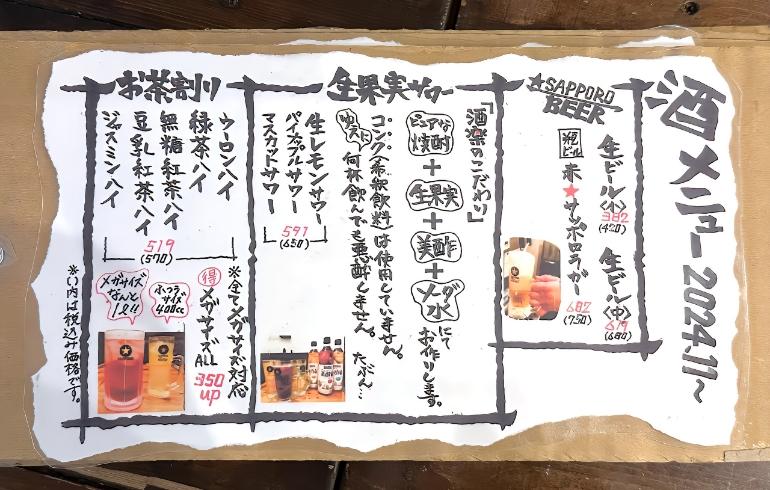 酒メニュー2024.11〜
★SAPPORO
BEER
生ビール〈小〉
382
(420)
生ビール〈中〉
619
(680)
瓶ビール
赤★サッポロラガー
682
(750)
生果実サワー
「酒楽のこだわり」
ピュアな焼酎
+
生果実
+
美酢
+
ソーダ水
にてお作りします。
コンク(希釈飲料)は使用していません。
ゆえに何杯飲んでも悪酔しません。
たぶん…
生レモンサワー
パイナップルサワー
マスカットサワー
591
(650)
お茶割り
ウーロンハイ
緑茶ハイ
無糖紅茶ハイ
豆乳紅茶ハイ
ジャスミンハイ
519
(570)
※全てメガサイズ対応
得
メガサイズ
ALL
350
up
ふつうサイズ
400cc
メガサイズ
なんと
1ℓ!!
※( )内は税込み価格です。